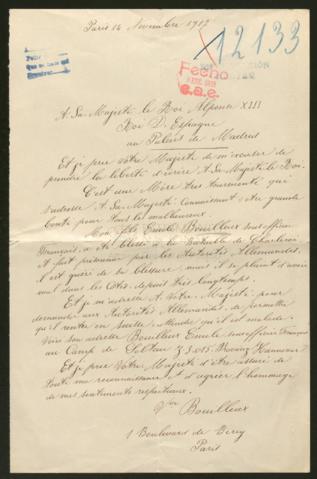 Paris 14 Novembre 1917
12133
Fecho
c.a.e.
A Sa Majesté le Roi Alphonse XIII
Roi D'Espagne
au Palais de Madrid
Et je prie Votre Majesté de m'excuser de
prendre la liberté d'écrire à Sa Majesté le Roi.
C'est une Mère très tourmentée qui
s'adresse A Sa Majesté connaissant votre grande
bonté pour tous les malheureux.
Mon fils Emile Bouilleux sous officier
Français, a été blessé à la Bataille de Charleroi
et fait prisonnier par les Autorités Allemandes.
il est guéri de sa blessure mais il se plaint d'avoir
mal dans les Côtes depuis très longtemps.
Et je m'adresse A Votre Majesté pour
demander aux Autorités Allemandes, de permettre
qu'il rentre en Suisse attendu qu'il est malade.
Voici son adresse Bouilleux Emile sous officier Français
au Camp de Soltau Z 3.015. Provinz Hannover
Et je prie Votre Majesté d'être assuré de
toute ma reconnaissance et d'agréer l'hommage
de mes sentiments respectueux.
Bouilleux
1 Boulevard de Bercy
Paris